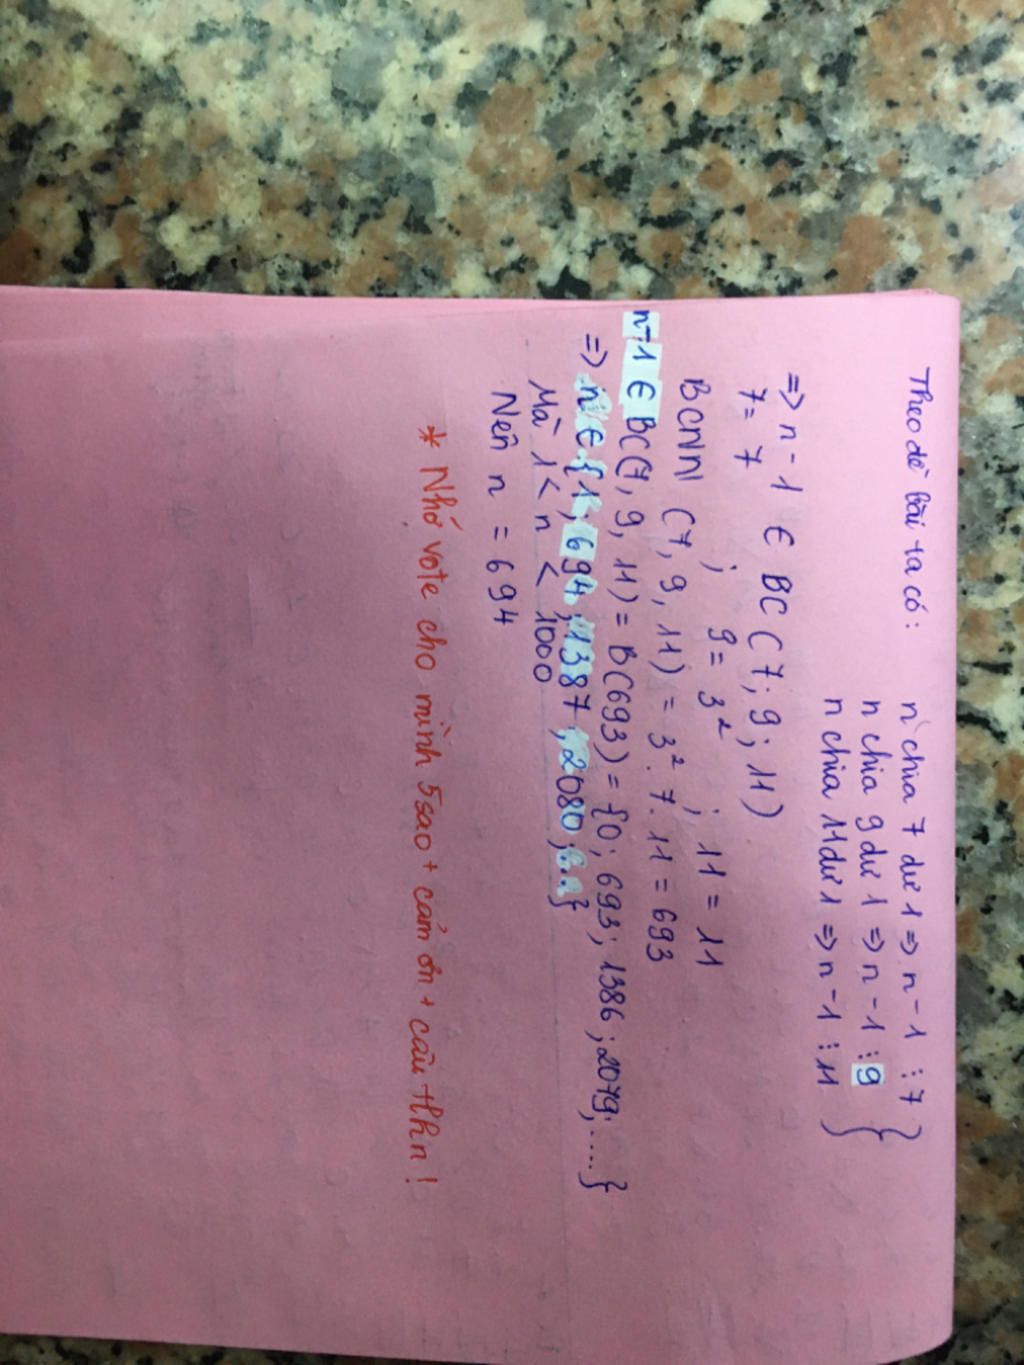 Theo đề bài ta có: n chia 7 dư 1 => n - 1 ⋮ 7
n chia 9 dư 1 => n - 1 ⋮ 9
n chia 11 dư 1 => n - 1 ⋮ 11 }
=> n - 1 ∈ BC (7; 9; 11)
7 = 7 ; 9 = 3² ; 11 = 11
BCNN (7, 9, 11) = 3² . 7 . 11 = 693
n-1 ∈ BC(7, 9, 11) = B(693) = {0; 693; 1386; 2079; ....}
=> n ∈ {1; 694; 1387; 2080; ...}
Mà 1 < n < 1000
Nên n = 694
* Nhớ vote cho mình 5 sao + cảm ơn + câu tlhn !